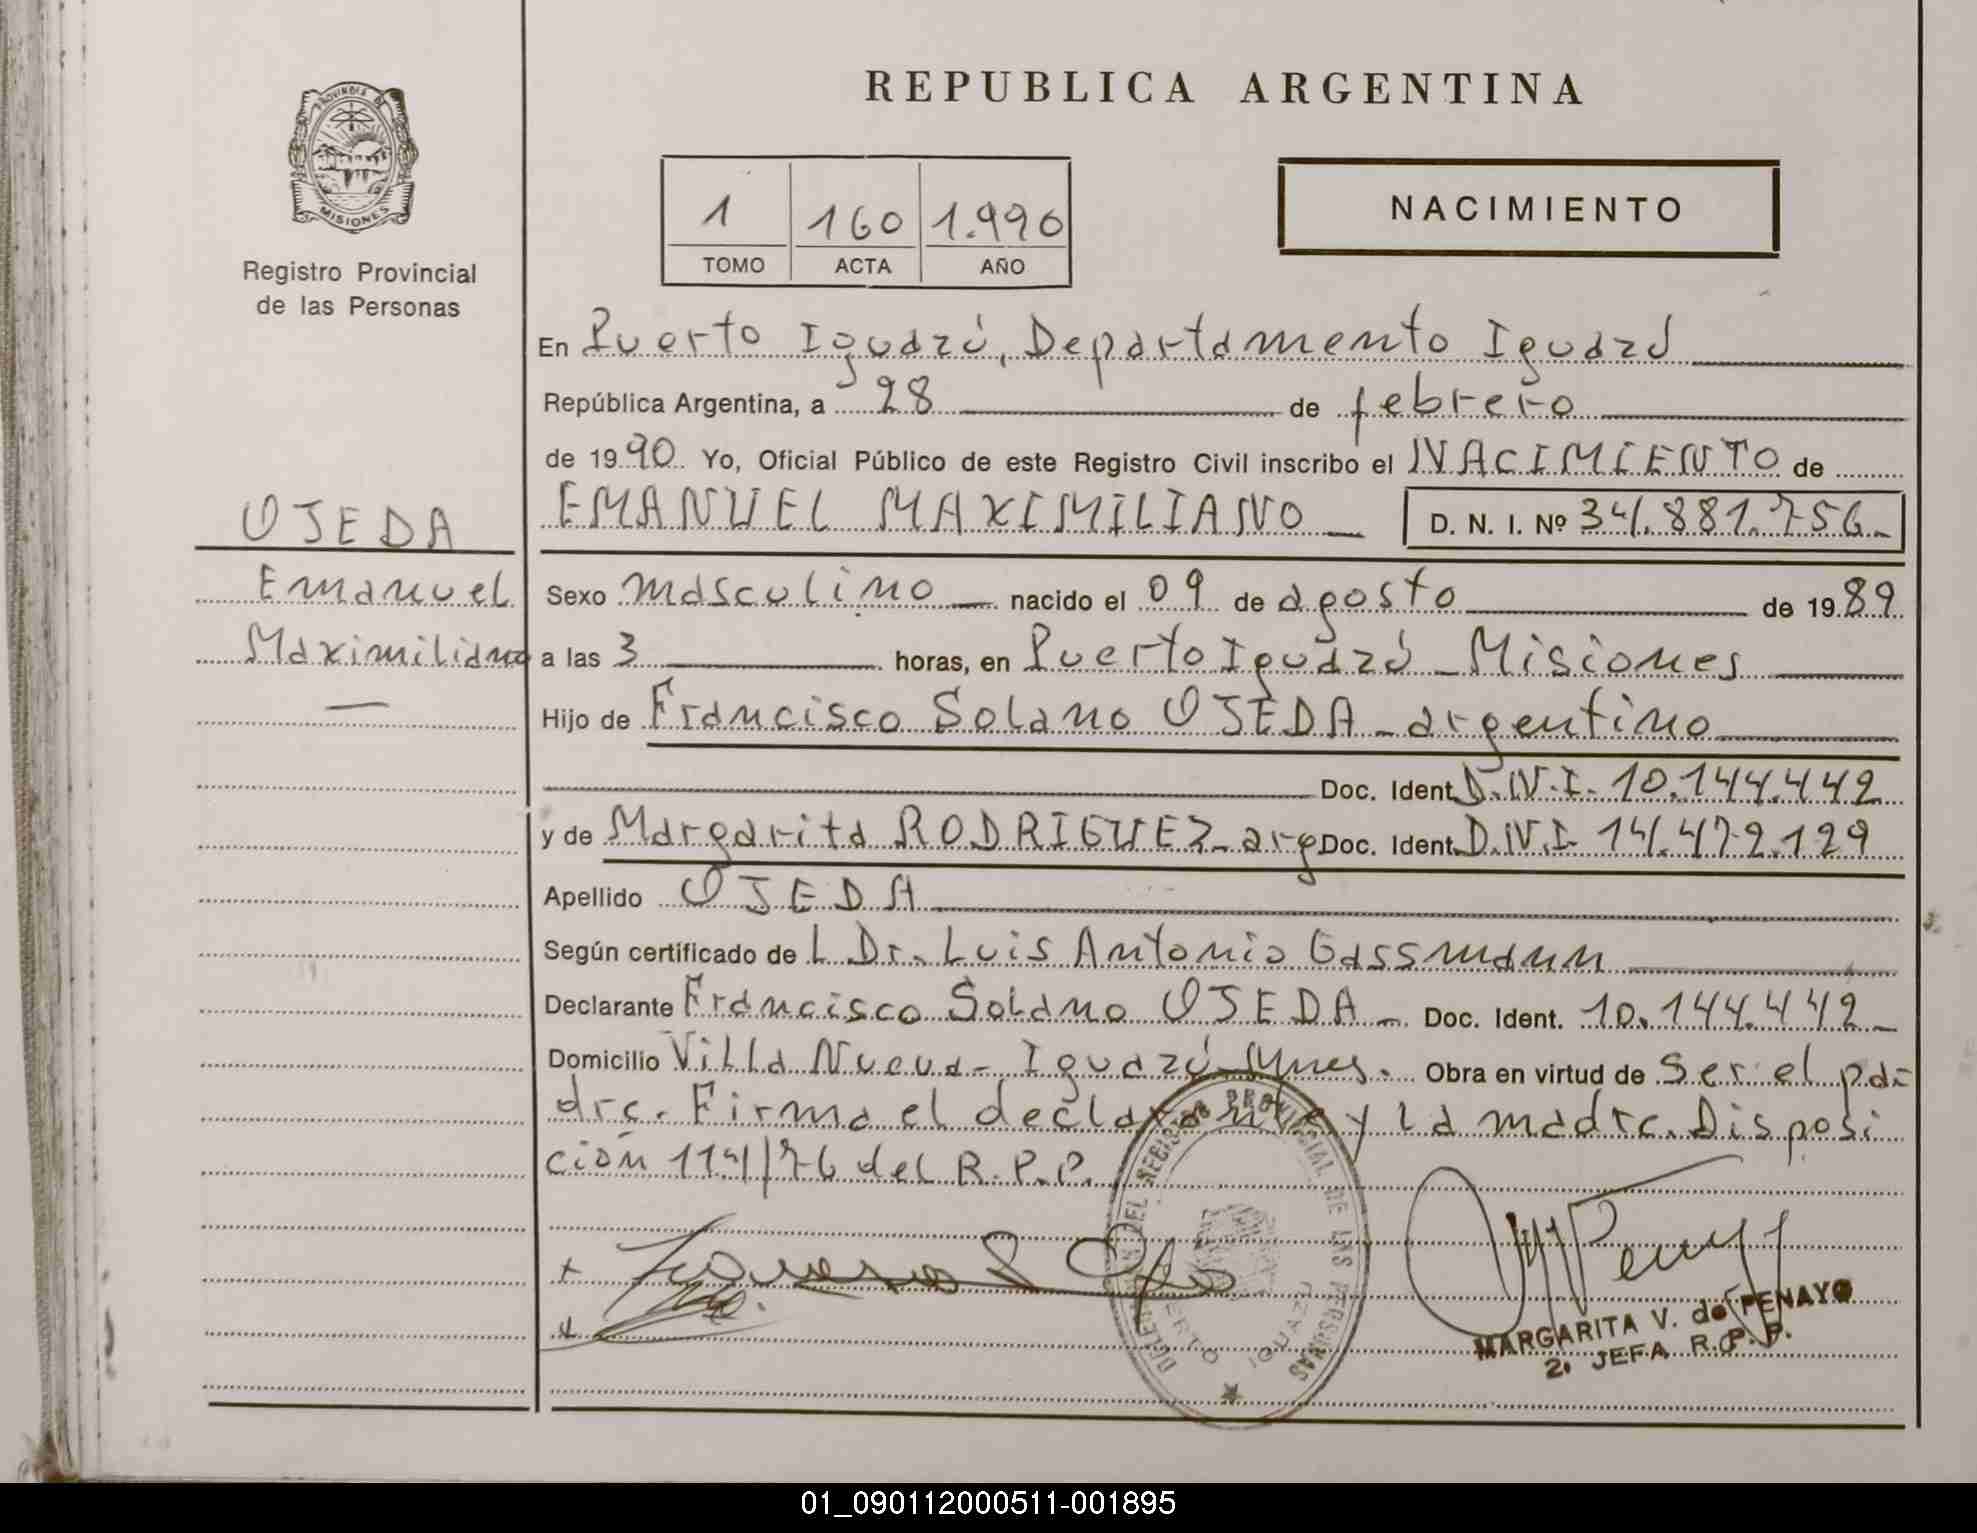 REPUBLICA ARGENTINA
PROVINCIA DE
MISIONES
Registro Provincial
de las Personas
1 160 1.990
TOMO ACTA AÑO
NACIMIENTO
En Puerto Iguazú, Departamento Iguazú
República Argentina, a 28 de febrero
de 1990 Yo, Oficial Público de este Registro Civil inscribo el NACIMIENTO de
EMANUEL MAXIMILIANO D. N. I. Nº 34.881.756
OJEDA
Emanuel
Maximiliano
Sexo masculino nacido el 09 de agosto de 1989
a las 3 horas, en Puerto Iguazú - Misiones
Hijo de Francisco Solano OJEDA - argentino
Doc. Ident. D.N.I. 10.144.442
y de Margarita RODRIGUEZ - arg Doc. Ident. D.N.I. 14.472.129
Apellido OJEDA
Según certificado de L Dr. Luis Antonio Gassmann
Declarante Francisco Solano OJEDA - Doc. Ident. 10.144.442 -
Domicilio Villa Nueva - Iguazú Mnes. Obra en virtud de Ser el pa-
dre. Firma el declarante y la madre. Disposi
ción 114/76 del R.P.P.
DELEGACION DEL REGISTRO PROVINCIAL DE LAS PERSONAS
PUERTO IGUAZU
MARGARITA V. de PENAYO
2. JEFA R. P. P.
01_090112000511-001895